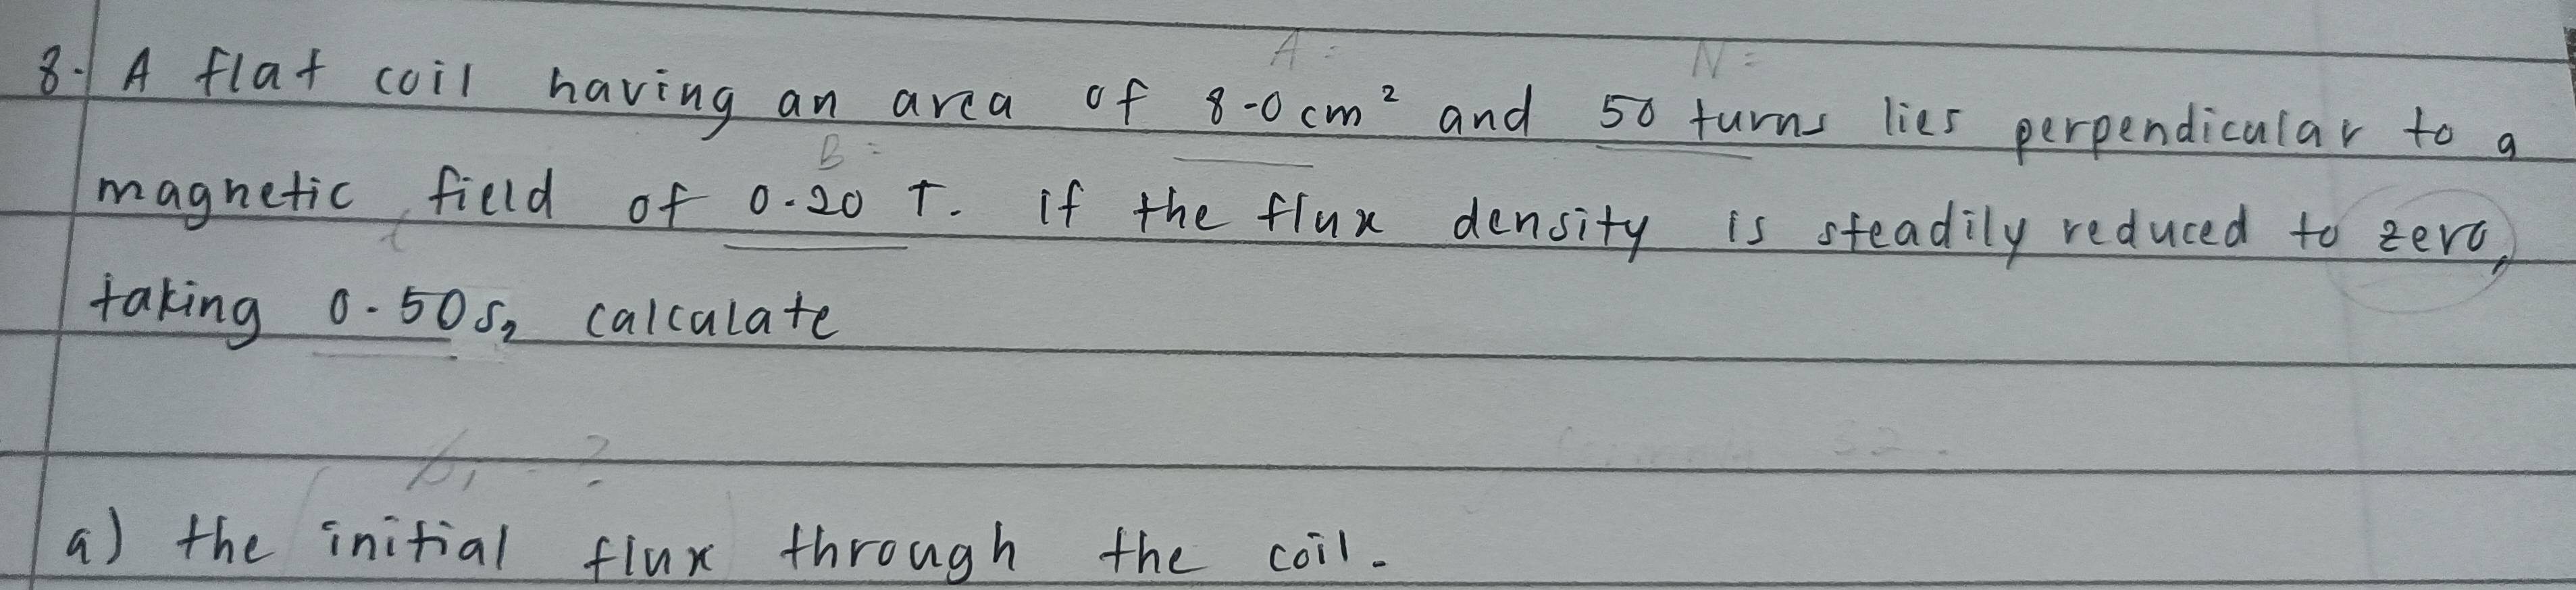 A = N =
8. A flat coil having an area of 8.0 cm² and 50 turns lies perpendicular to a
B =
magnetic field of 0.20 T. if the flux density is steadily reduced to zero,
t
taking 0.50s, calculate
?
a) the initial flux through the coil.